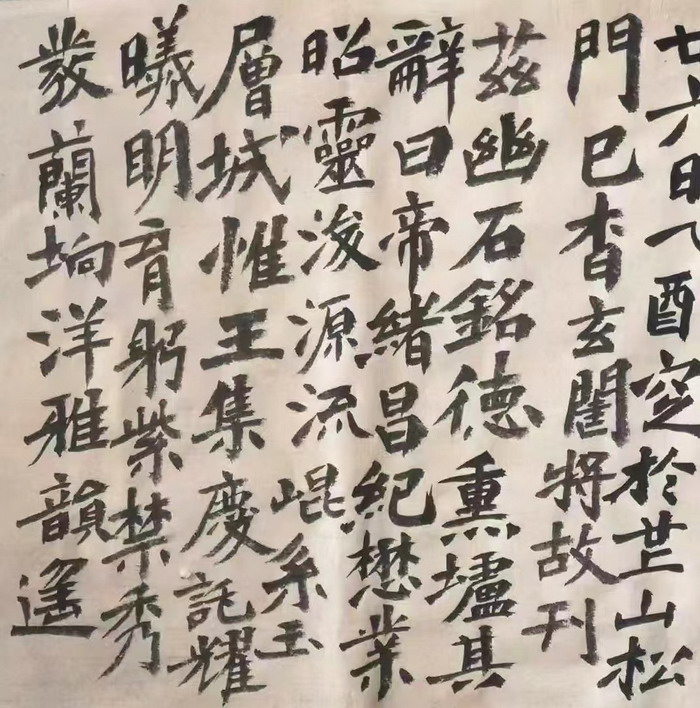 廿六日丁酉窆於芒山松
門已杳玄閨將故刊
茲幽石銘德熏壚其
辭曰帝緒昌紀懋業
昭靈浚源流崐系玉
層城惟王集慶託耀
曦明育躬紫禁秀
發蘭坰洋雅韻遙